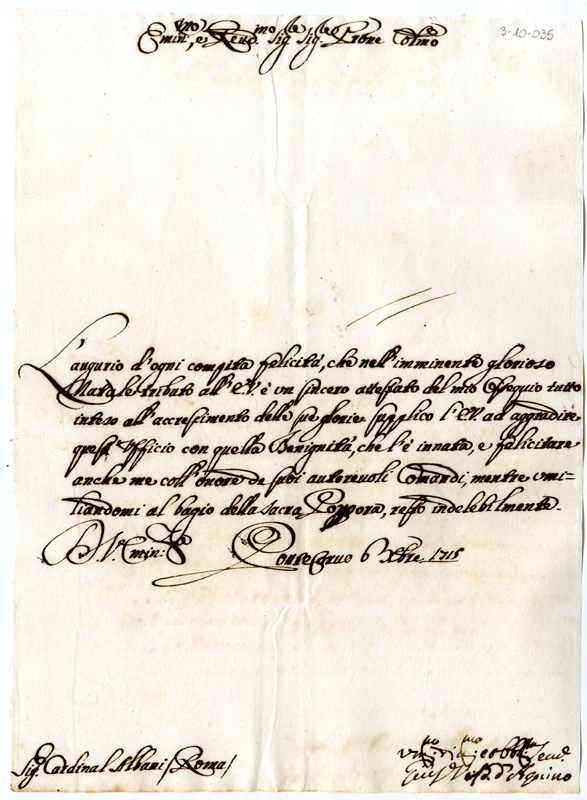 3-10-035
Emin.mo, e Reud.mo Sig. Sig.re Prone Colmo
L'augurio d'ogni compita felicità, che nell'imminente glorioso
Natale tributo all'E.V. è vn sincero attestato del mio Ossequio tutto
inteso all'accrescimento delle sue glorie supplico l'E.V. ad aggradire
quest'Vfficio con quella Benignità, che l'è innata, e felicitare
anche me coll'onore de suoi autoreuoli Comandi, mentre vmi-
liandomi al bagio della sacra Porpora, resto indelebilmente.
D. V. Emin.
Pontecoruo 6 Xbre 1715
Sig. Cardinal Albani / Roma /
Vm.mo di.mo et obb.mo Seru.
Gius. Vesc. d'Aquino